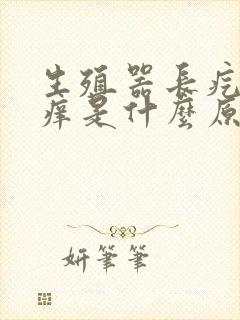 生殖器長疙
癢是什麼原
妍筆筆